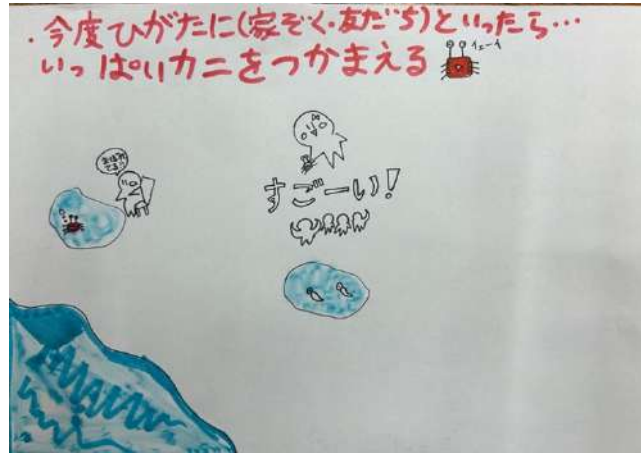 ・今度ひがたに(家ぞく・友だち)といったら…
いっぱいカニをつかまえる
イェーイ
すごーい!